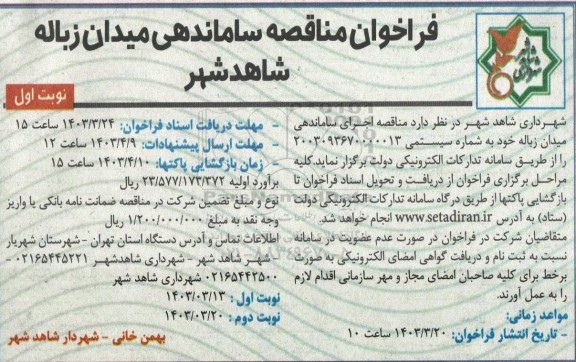 فراخوان مناقصه ساماندهی میدان زباله
شاهدشهر
نوبت اول
شهرداری شاهد شهر در نظر دارد مناقصه اجرای ساماندهی
میدان زباله خود به شماره سیستمی ۲۰۰۳۰۹۳۶۷۰۰۰۰۰۱۳
را از طریق سامانه تدارکات الکترونیکی دولت برگزار نماید.کلیه
مراحل برگزاری فراخوان از دریافت و تحویل اسناد فراخوان تا
بازگشایی پاکتها از طریق درگاه سامانه تدارکات الکترونیکی دولت
(ستاد) به آدرس www.setadiran.ir انجام خواهد شد.
متقاضیان شرکت در فراخوان در صورت عدم عضویت در سامانه
نسبت به ثبت نام و دریافت گواهی امضای الکترونیکی به صورت
برخط برای کلیه صاحبان امضای مجاز و مهر سازمانی اقدام لازم
را به عمل آورند.
مواعد زمانی:
- تاریخ انتشار فراخوان: ۱۴۰۳/۳/۲۰ ساعت ۱۰
- مهلت دریافت اسناد فراخوان: ۱۴۰۳/۳/۲۴ ساعت ۱۵
- مهلت ارسال پیشنهادات: ۱۴۰۳/۴/۹ ساعت ۱۲
- زمان بازگشایی پاکتها: ۱۴۰۳/۴/۱۰ ساعت ۱۵
برآورد اولیه ۲۳/۵۷۷/۱۷۳/۳۷۲ ریال
نوع و مبلغ تضمین شرکت در مناقصه ضمانت نامه بانکی یا واریز
وجه نقد به مبلغ ۱/۲۰۰/۰۰۰/۰۰۰ ریال
اطلاعات تماس و آدرس دستگاه استان تهران - شهرستان شهریار
- شهر شاهد شهر - شهرداری شاهدشهر ۰۲۱۶۵۴۴۵۲۲۱ -
۰۲۱۶۵۴۴۲۵۰۰ شهرداری شاهد شهر
نوبت اول : ۱۴۰۳/۰۳/۱۳
نوبت دوم : ۱۴۰۳/۰۳/۲۰
بهمن خانی - شهردار شاهد شهر